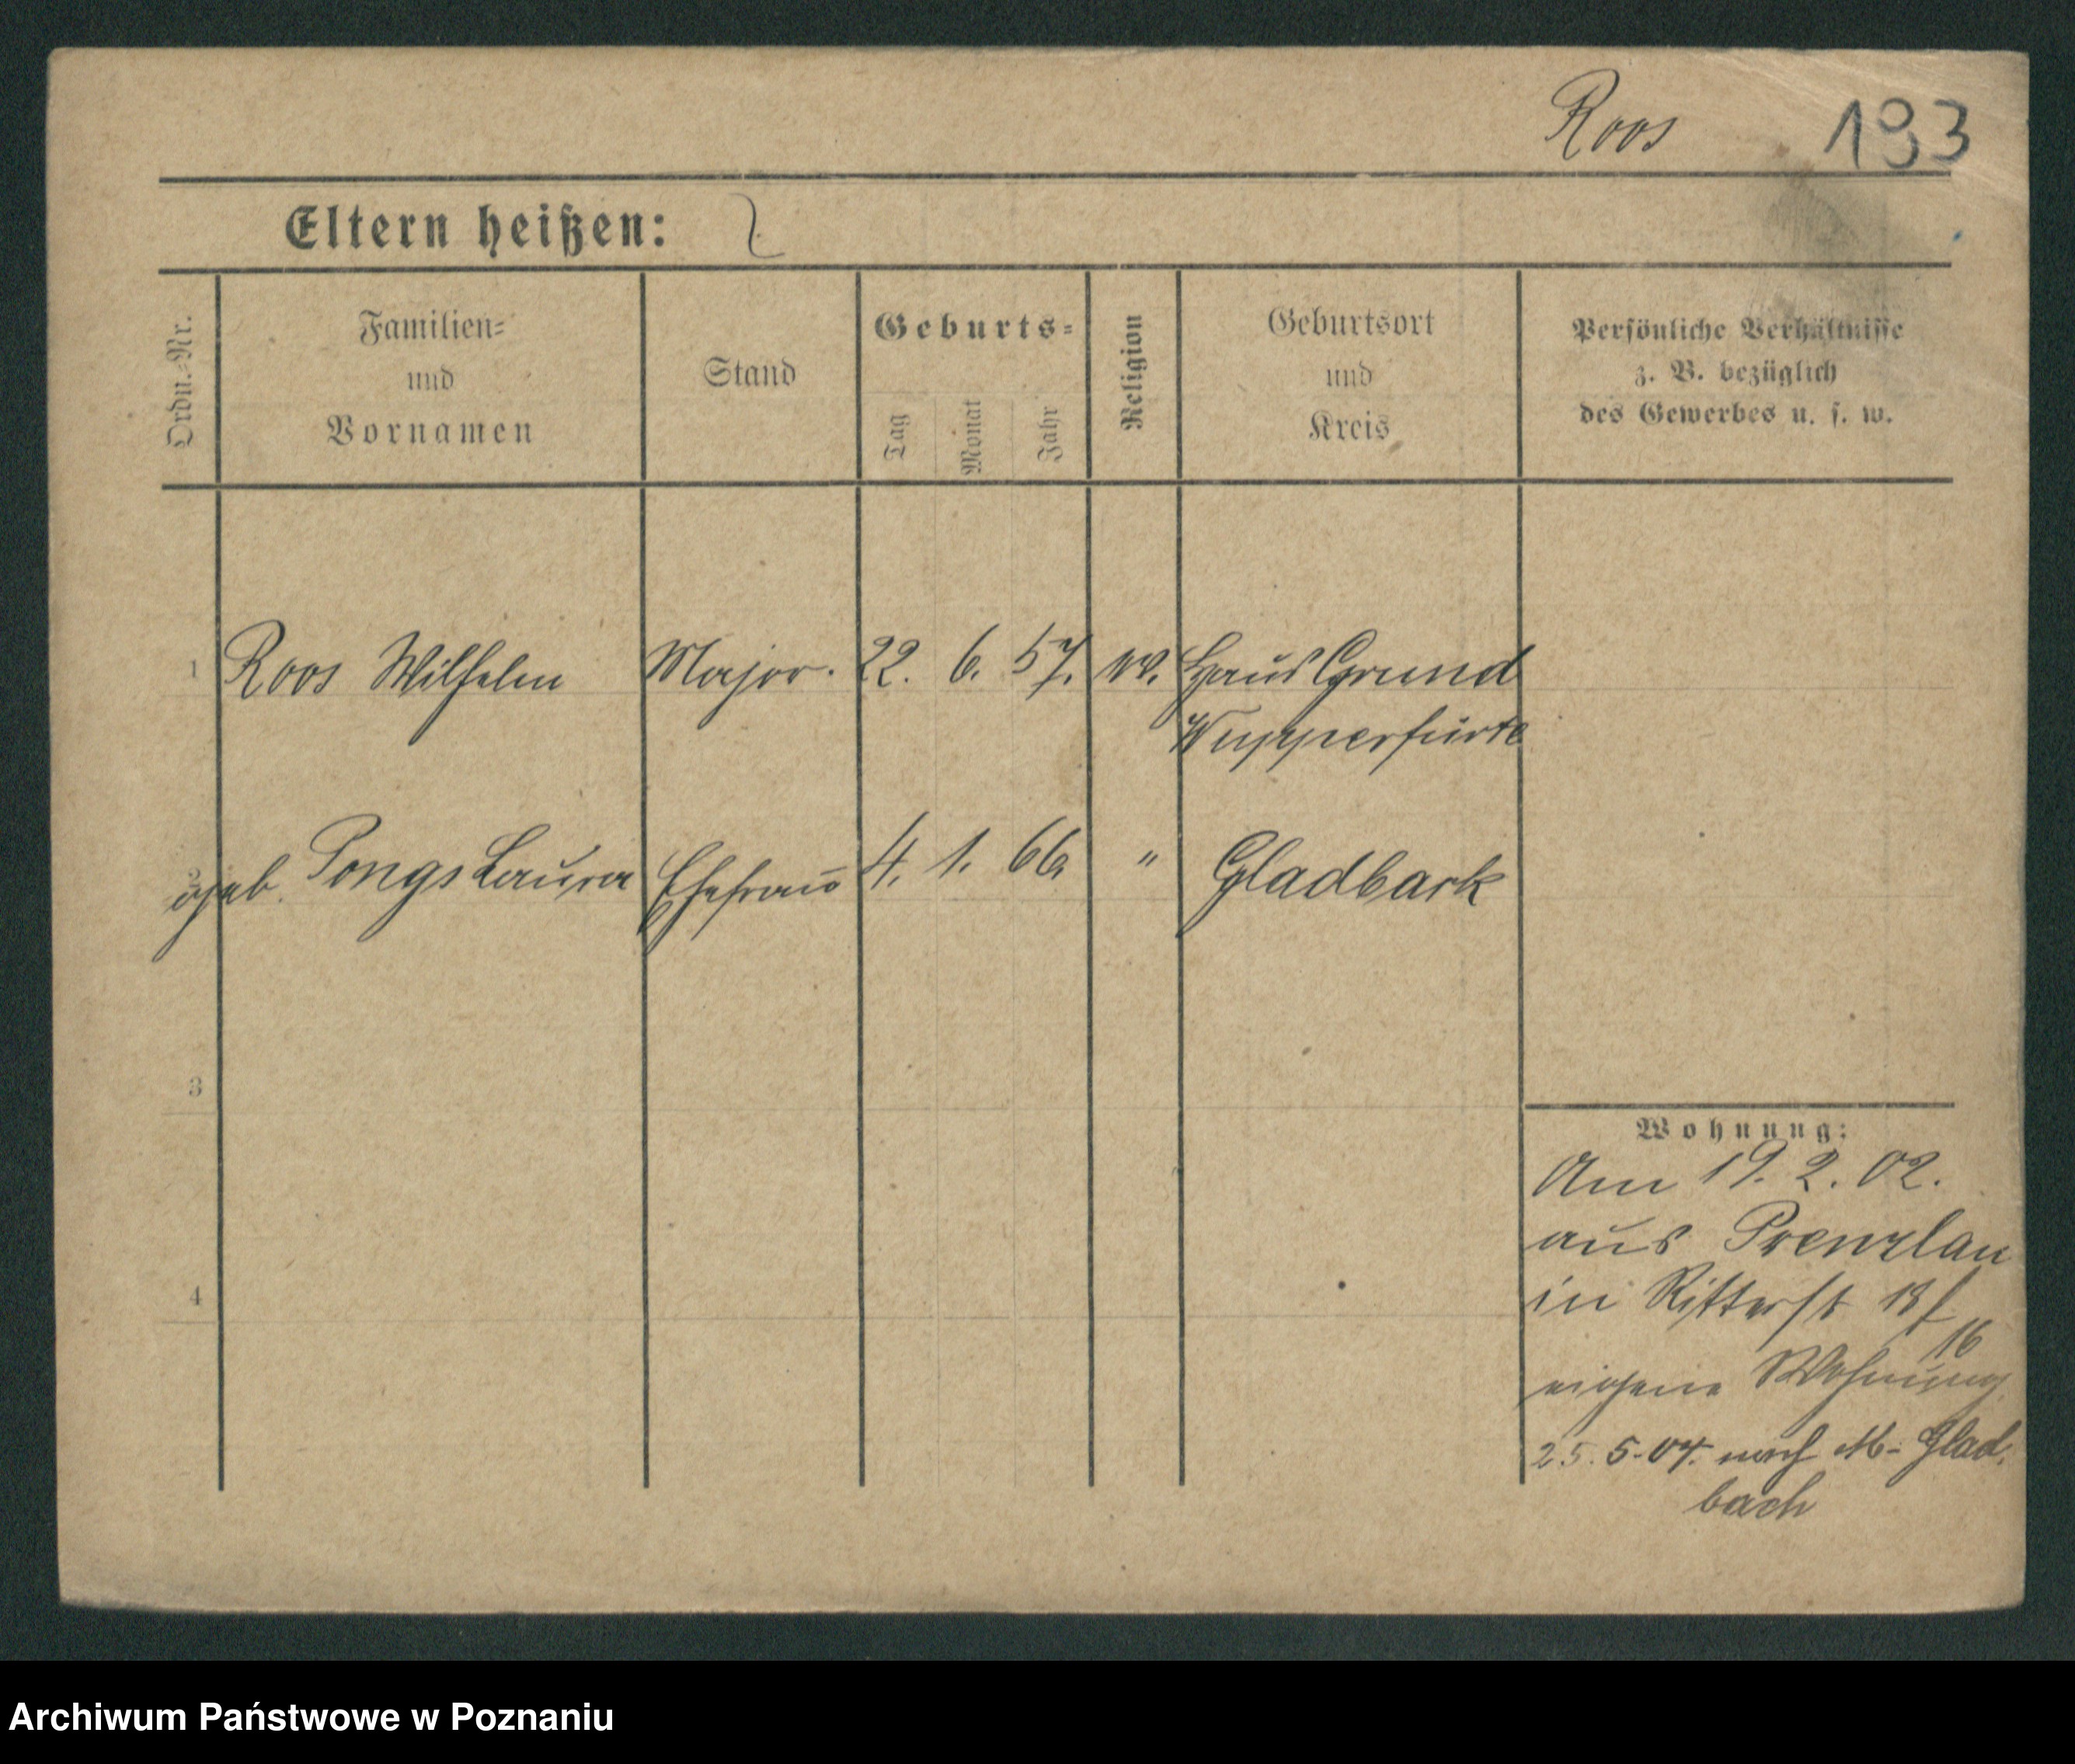 Roos 193
Eltern heißen:
Ordn.-Nr.
Familien-
und
Vornamen
Stand
Geburts-
Tag
Monat
Jahr
Religion
Geburtsort
und
Kreis
Persönliche Verhältnisse
z. B. bezüglich
des Gewerbes u. s. w.
1 Roos Wilhelm Major. 22. 6. 57. ev. Haus Grund
Wupperfürte
geb. Pongs Laura Ehefrau 4. 1. 66 " Gladback
3
Wohnung:
Am 19. 2. 02.
aus Prenzlau
4
in Ritterst
16
eigene Wohnung
25. 5. 04. nach M- Glad.
bach
Archiwum Państwowe w Poznaniu